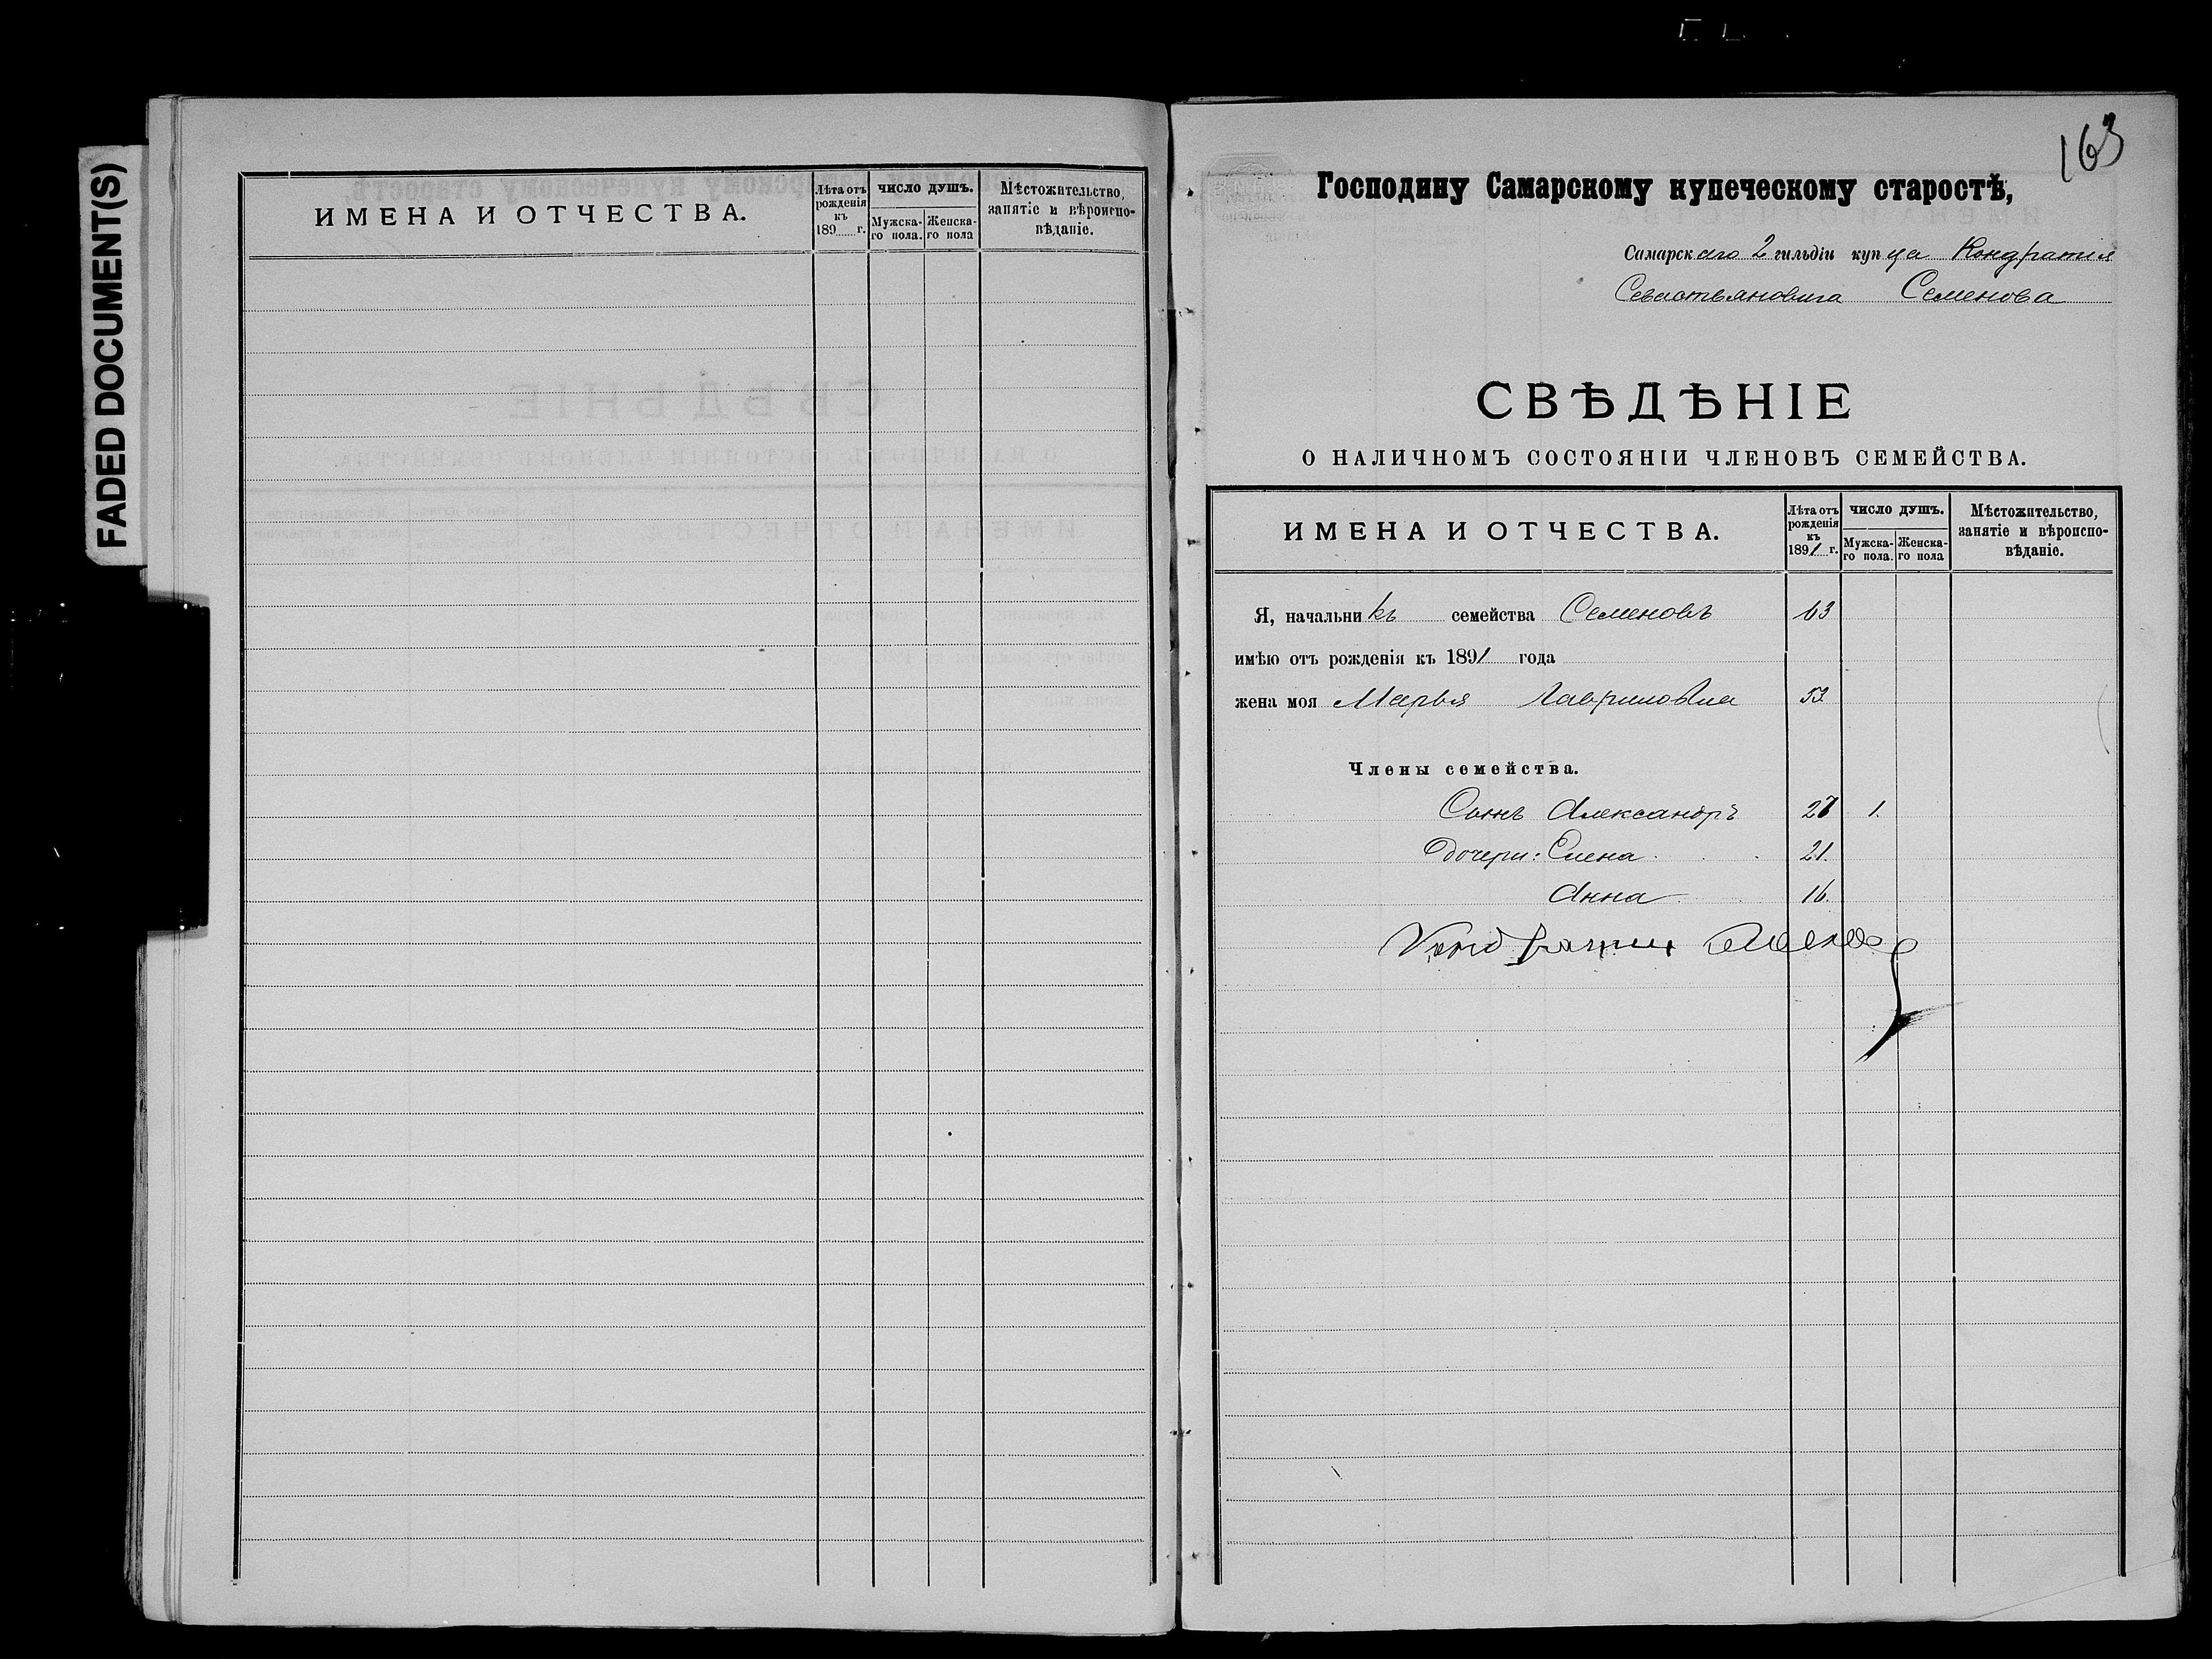 FADED DOCUMENT(S)
ИМЕНА И ОТЧЕСТВА.
Лѣта отъ рожденія къ 189 г.
ЧИСЛО ДУШЪ.
Мужска-го пола.
Женска-го пола
Мѣстожительство, занятіе и вѣроиспо-вѣданіе.
163
Господину Самарскому купеческому старостѣ,
Самарскаго 2 гильдіи купца Кондратія
Севастьяновича Семенова
СВѢДѢНІЕ
О НАЛИЧНОМЪ СОСТОЯНІИ ЧЛЕНОВЪ СЕМЕЙСТВА.
ИМЕНА И ОТЧЕСТВА.
Лѣта отъ рожденія къ 1891 г.
ЧИСЛО ДУШЪ.
Мужска-го пола.
Женска-го пола
Мѣстожительство, занятіе и вѣроиспо-вѣданіе.
Я, начальникъ семейства Семеновъ 63
имѣю отъ рожденія къ 1891 года
жена моя Марья Гавриловна 53
Члены семейства.
Сынъ Александръ 27 1.
Дочери: Елена 21.
Анна 16.
Кондратий